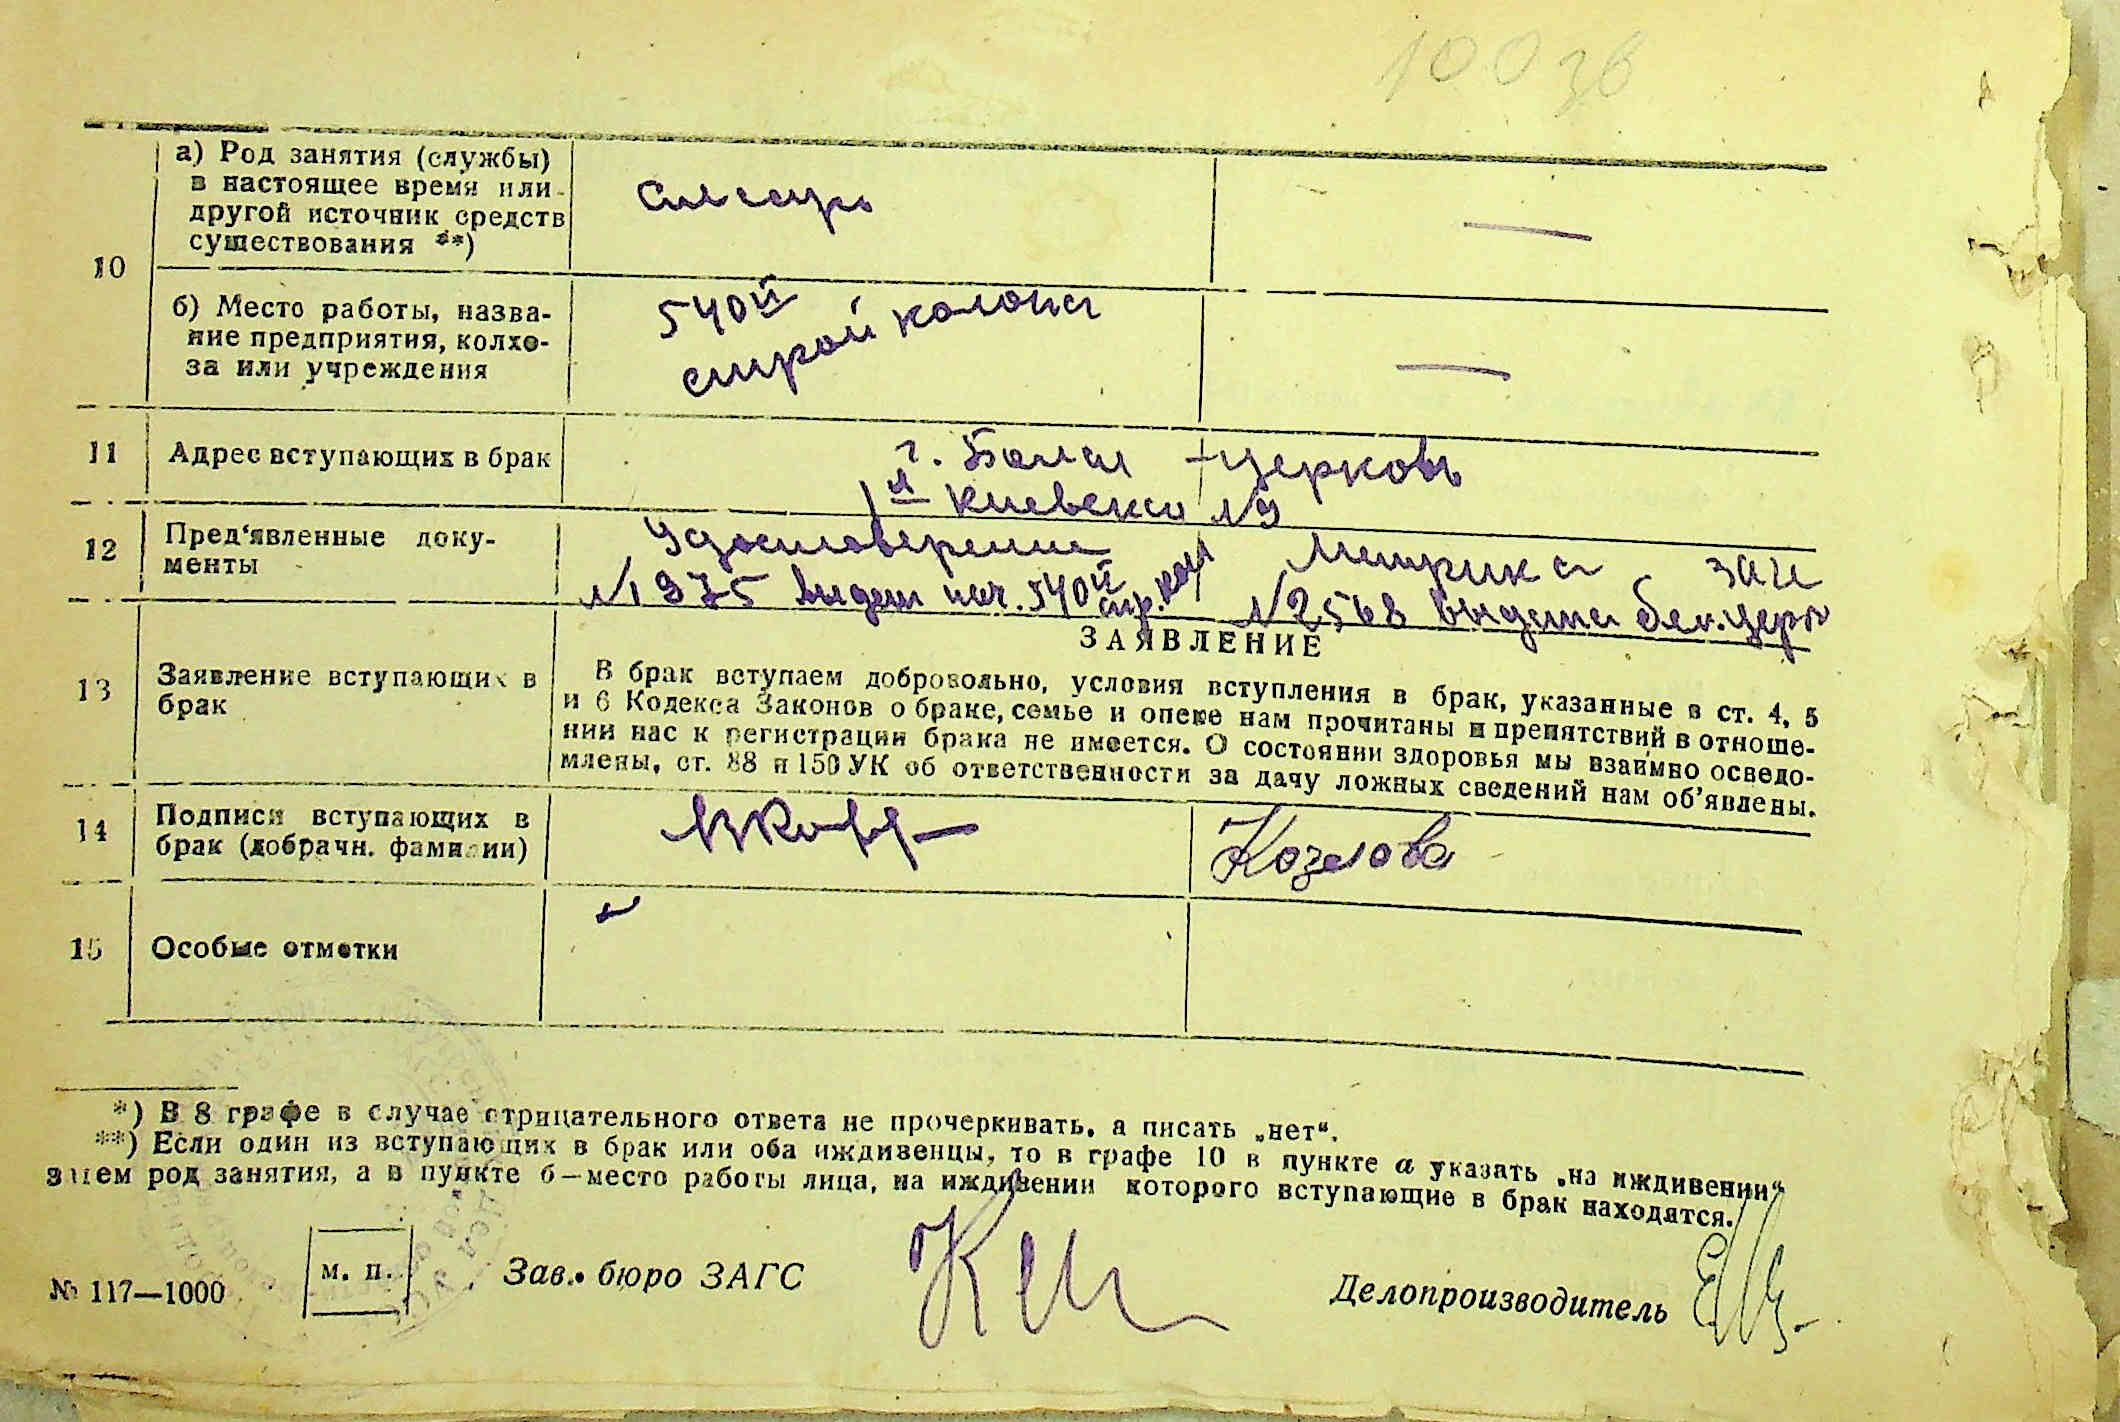 100 зв
10
а) Род занятия (службы)
в настоящее время или
другой источник средств
существования **)
слесарь
—
б) Место работы, назва-
ние предприятия, колхо-
за или учреждения
540й
строй колона
—
11
Адрес вступающих в брак
г. Белая церковь
1я Киевская №9
12
Пред'явленные доку-
менты
Удостоверение
№1975 выдан нач. 540й стр. кол
Метрика
№2568 выдана Бел.церк
13
Заявление вступающих в
брак
ЗАЯВЛЕНИЕ
В брак вступаем добровольно, условия вступления в брак, указанные в ст. 4, 5
и 6 Кодекса Законов о браке, семье и опеке нам прочитаны и препятствий в отноше-
нии нас к регистрации брака не имеется. О состоянии здоровья мы взаимно осведо-
млены, ст. 88 и 150 УК об ответственности за дачу ложных сведений нам об'явлены.
14
Подписи вступающих в
брак (добрачн. фамилии)
Козлова
15
Особые отметки
*) В 8 графе в случае отрицательного ответа не прочеркивать, а писать „нет“.
**) Если один из вступающих в брак или оба иждивенцы, то в графе 10 в пункте а указать „на иждивении“
зитем род занятия, а в пункте б—место работы лица, на иждивении которого вступающие в брак находятся.
№ 117—1000
м. п.
Зав. бюро ЗАГС
Делопроизводитель